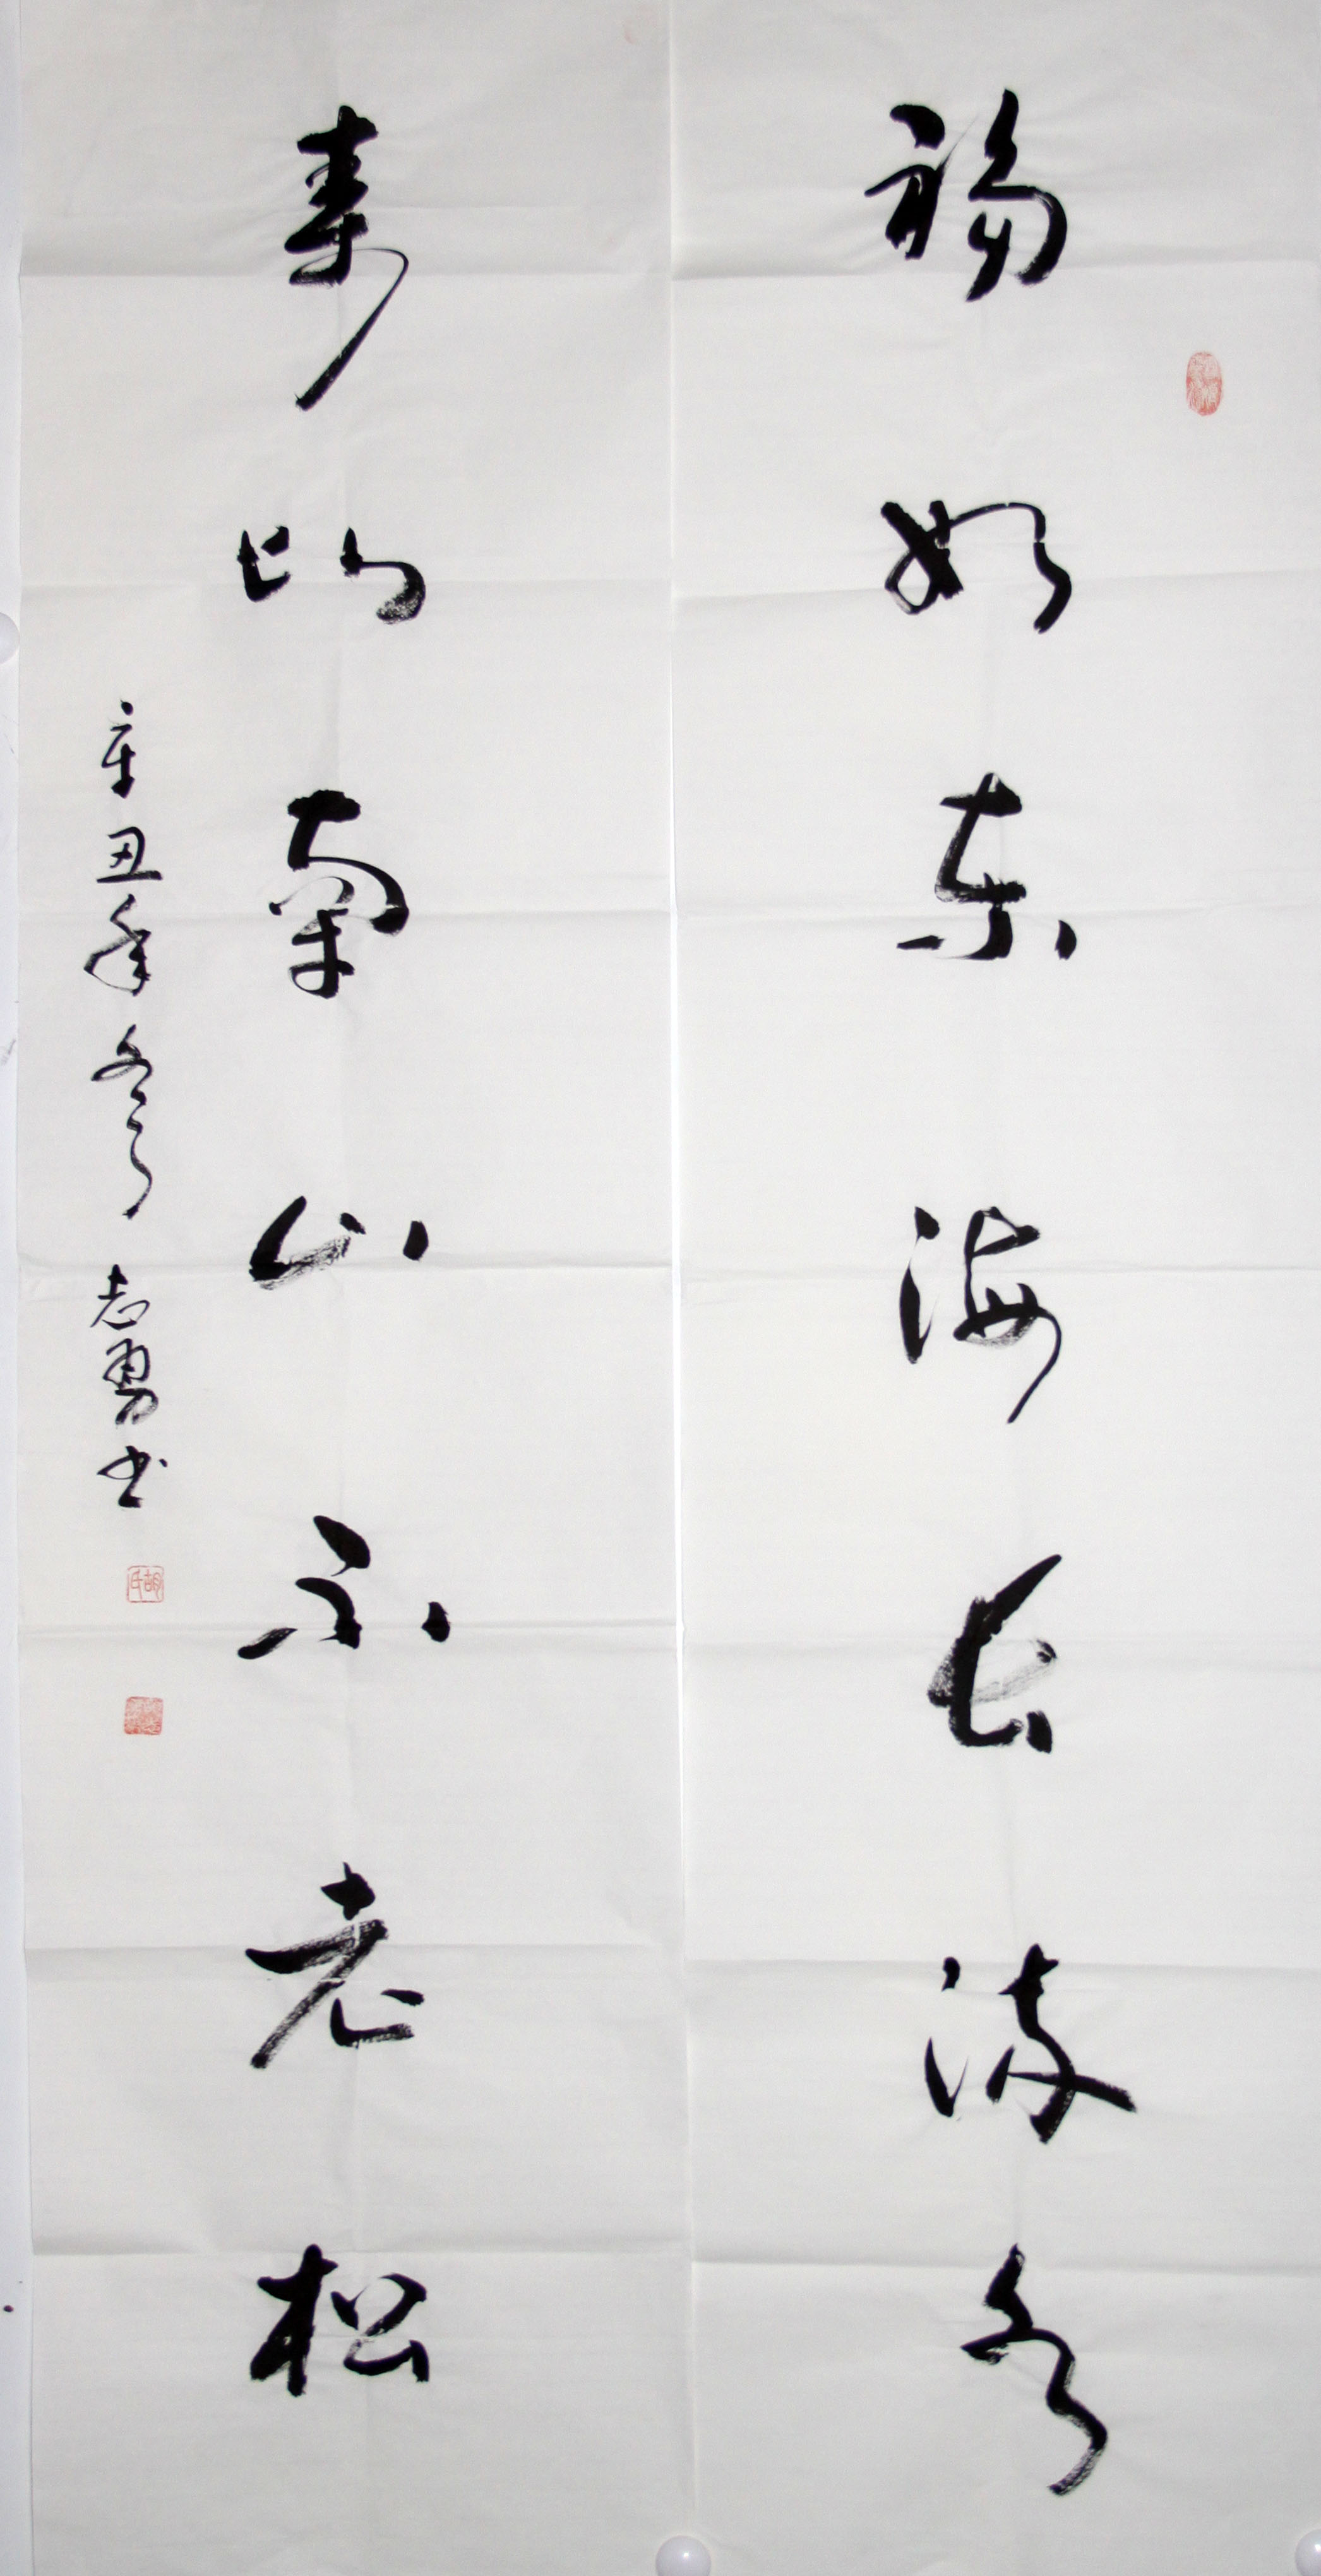 福如东海长流水
寿比南山不老松
辛丑年冬 志勇书
胡氏